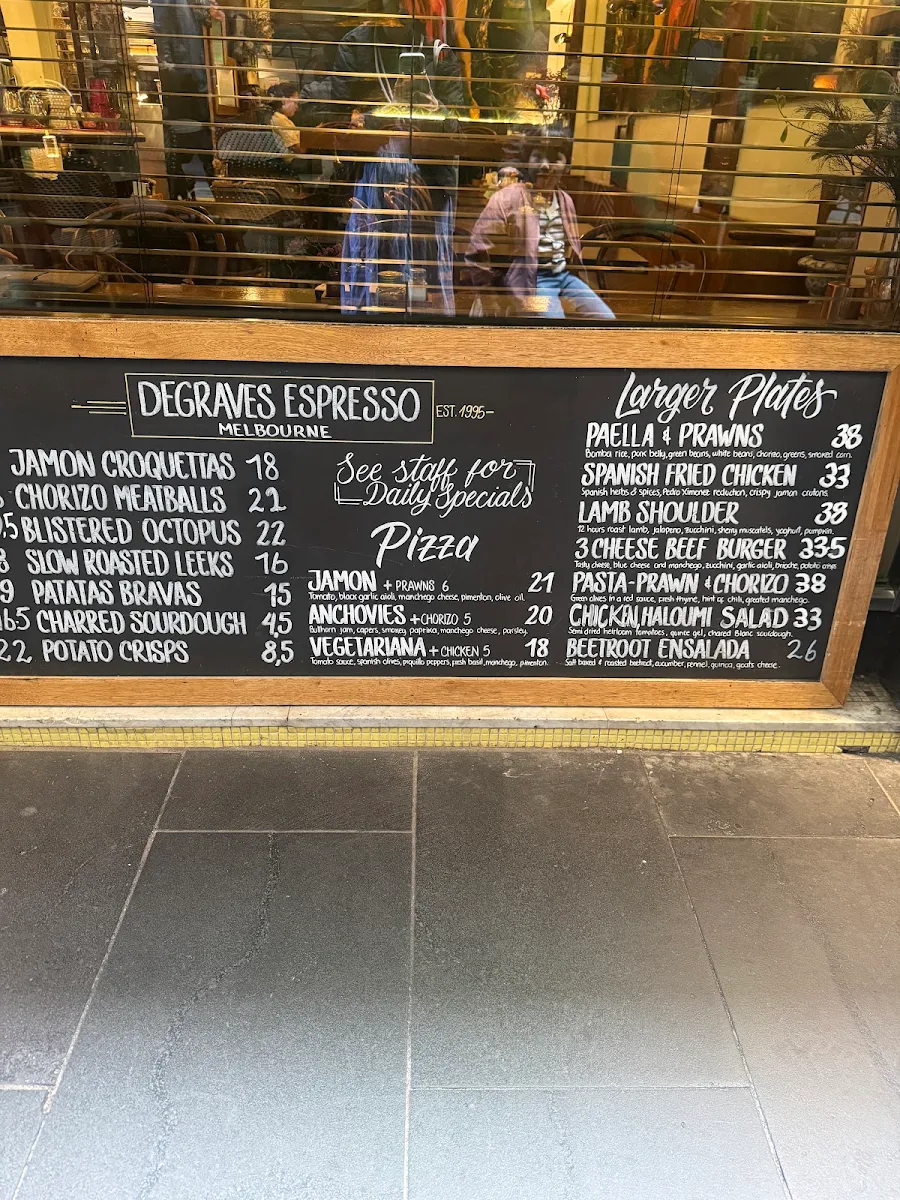 DEGRAVES ESPRESSO
MELBOURNE
EST. 1995
JAMON CROQUETTAS 18
CHORIZO MEATBALLS 22
BLISTERED OCTOPUS 22
SLOW ROASTED LEEKS 16
PATATAS BRAVAS 15
CHARRED SOURDOUGH 4,5
POTATO CRISPS 8,5
See staff for
Daily Specials
Pizza
JAMON + PRAWNS 6 21
Tomato, black garlic aioli, manchego cheese, pimenton, olive oil.
ANCHOVIES + CHORIZO 5 20
Bullhorn jam, capers, smokey paprika, manchego cheese, parsley.
VEGETARIANA + CHICKEN 5 18
Tomato sauce, spanish olives, piquillo peppers, fresh basil, manchego, pimenton.
Larger Plates
PAELLA & PRAWNS 38
Bomba rice, pork belly, green beans, white beans, chorizo, greens, smoked corn.
SPANISH FRIED CHICKEN 33
Spanish herbs & spices, Pedro Ximenet reduction, crispy jamon crutons.
LAMB SHOULDER 38
12 hours roast lamb, jalapeno, zucchini, sherry muscatels, yoghurt, pumpkin.
3 CHEESE BEEF BURGER 33.5
Tasty cheese, blue cheese and manchego, zucchini, garlic aioli, brioche, potato crisps
PASTA-PRAWN & CHORIZO 38
Green olives in a red sauce, fresh thyme, hint of chili, greated manchego.
CHICKEN, HALOUMI SALAD 33
Semi dried heirloom tomatoes, quince gel, chared Blanc sourdough.
BEETROOT ENSALADA 26
Salt baked & roasted beetroot, cucumber, fennel, quinoa, goats cheese.